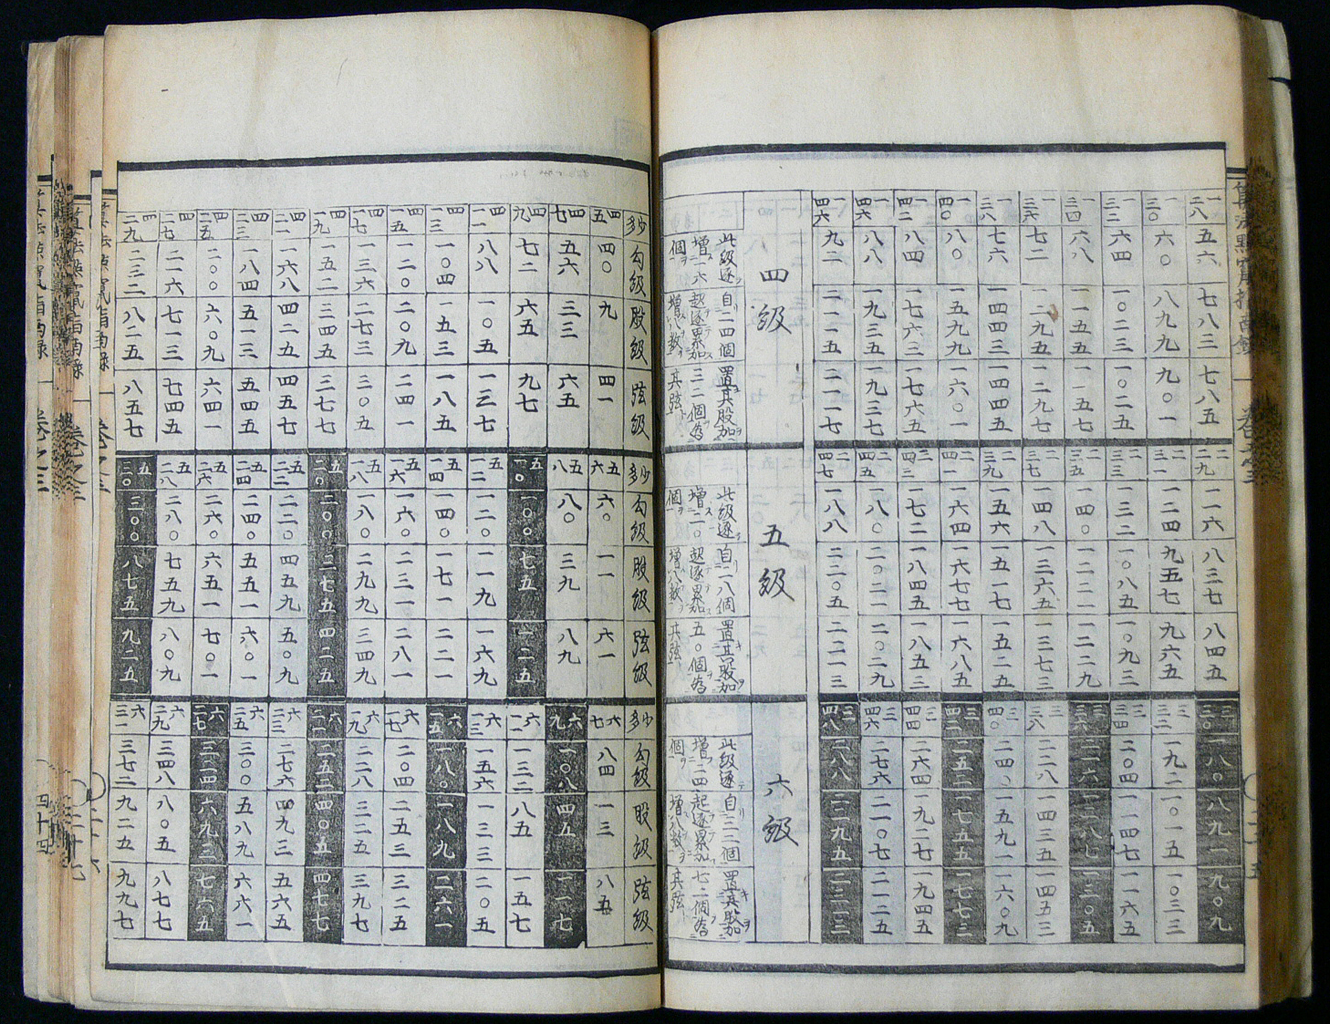 一二八 五六 七八三 七八五
一三〇 六〇 八九九 九〇一
一三二 六四 一〇二三 一〇二五
一三四 六八 一一五五 一一五七
一三六 七二 一二九五 一二九七
一三八 七六 一四四三 一四四五
一四〇 八〇 一五九九 一六〇一
一四二 八四 一七六三 一七六五
一四四 八八 一九三五 一九三七
一四六 九二 二一一五 二一一七
四級
此級逐 自二四個 置其股加
增一六 起逐累加 三二個為
個 增八数 其弦
二二九 一一六 八三七 八四五
二三一 一二四 九五七 九六五
二三三 一三二 一〇八五 一〇九三
二三五 一四〇 一二二一 一二二九
二三七 一四八 一三六五 一三七三
二三九 一五六 一五一七 一五二五
二四一 一六四 一六七七 一六八五
二四三 一七二 一八四五 一八五三
二四五 一八〇 二〇二一 二〇二九
二四七 一八八 二二〇五 二二一三
五級
此級逐 自二八個 置其股加
增二〇 起逐累加 五〇個為
個 增八数 其弦
三三〇 一八〇 八九一 九〇九
三三二 一九二 一〇一五 一〇三三
三三四 二〇四 一一四七 一一六五
三三六 二一六 一二八七 一三〇五
三三八 二二八 一四三五 一四五三
三四〇 二四〇 一五九一 一六〇九
三四二 二五二 一七五五 一七七三
三四四 二六四 一九二七 一九四五
三四六 二七六 二一〇七 二一二五
三四八 二八八 二二九五 二三一三
六級
此級逐 自三二個 置其股加
增二四 起逐累加 七二個為
個 增八数 其弦
多少 勾級 股級 弦級
四五 四〇 九 四一
四七 五六 三三 六五
四九 七二 六五 九七
四一一 八八 一〇五 一三七
四一三 一〇四 一五三 一八五
四一五 一二〇 二〇九 二四一
四一七 一三六 二七三 三〇五
四一九 一五二 三四五 三七七
四二一 一六八 四二五 四五七
四二三 一八四 五一三 五四五
四二五 二〇〇 六〇九 六四一
四二七 二一六 七一三 七四五
四二九 二三二 八二五 八五七
多少 勾級 股級 弦級
五六 六〇 一一 六一
五八 八〇 三九 八九
五一〇 一〇〇 七五 一二五
五一二 一二〇 一一九 一六九
五一四 一四〇 一七一 二二一
五一六 一六〇 二三一 二八一
五一八 一八〇 二九九 三四九
五二〇 二〇〇 三七五 四二五
五二二 二二〇 四五九 五〇九
五二四 二四〇 五五一 六〇一
五二六 二六〇 六五一 七〇一
五二八 二八〇 七五九 八〇九
五三〇 三〇〇 八七五 九二五
多少 勾級 股級 弦級
六七 八四 一三 八五
六九 一〇八 四五 一一七
六一一 一三二 八五 一五七
六一三 一五六 一三三 二〇五
六一五 一八〇 一八九 二六一
六一七 二〇四 二五三 三二五
六一九 二二八 三二五 三九七
六二一 二五二 四〇五 四七七
六二三 二七六 四九三 五六五
六二五 三〇〇 五八九 六六一
六二七 三二四 六九三 七六五
六二九 三四八 八〇五 八七七
六三一 三七二 九二五 九九七